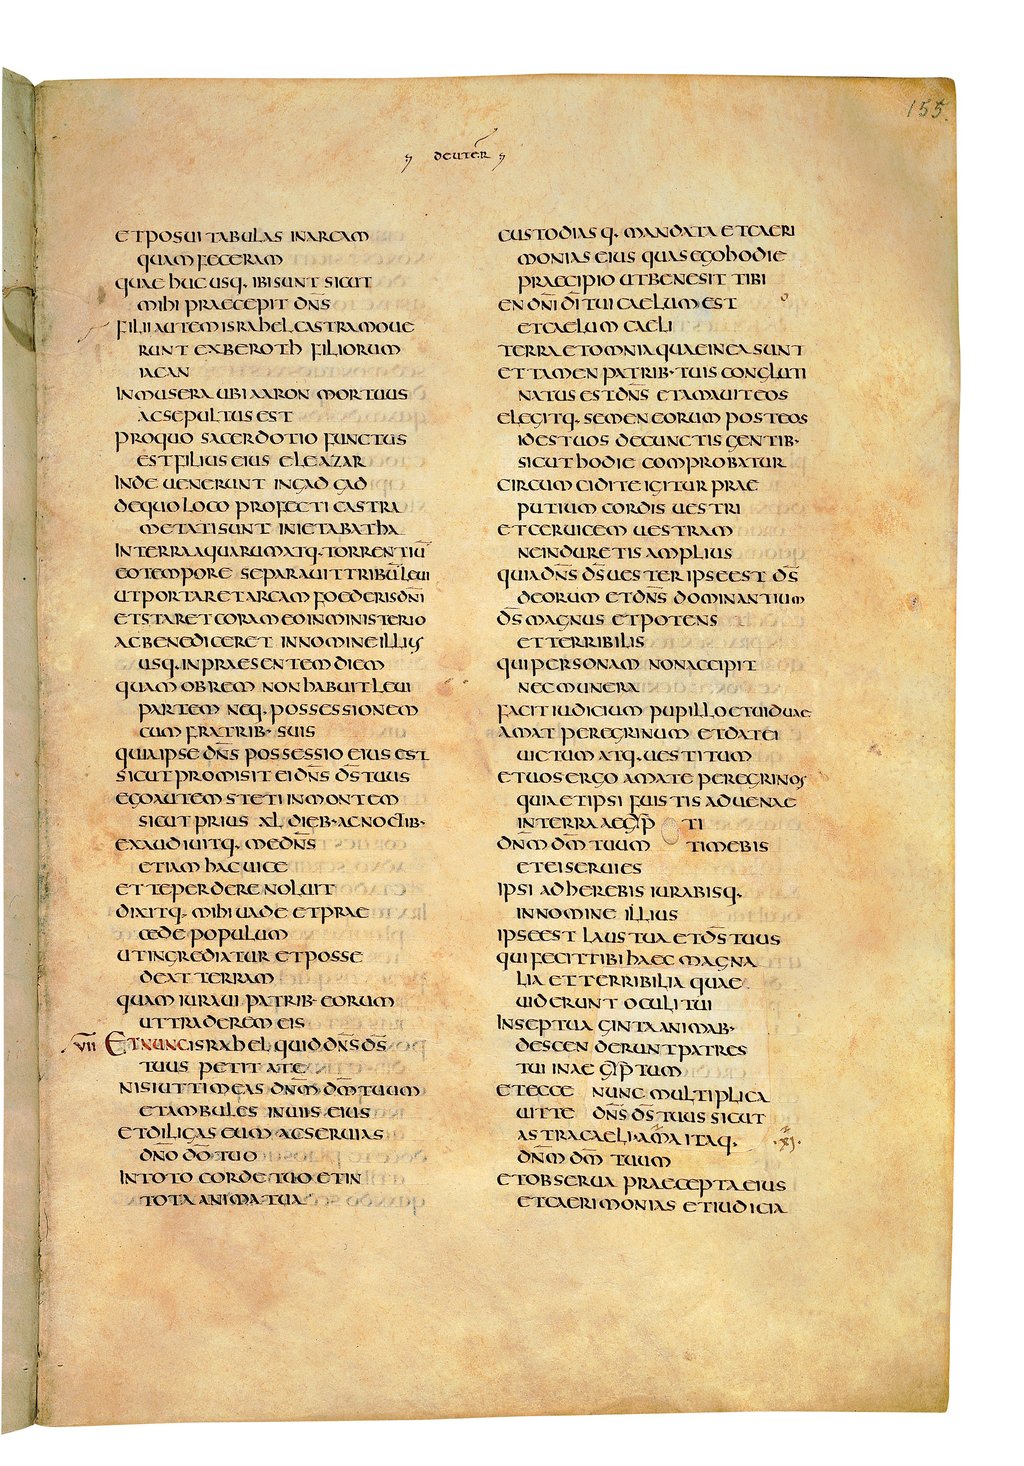 155.
DEUTER
ETPOSUI TABULAS INARCAM
QUAM FECERAM
QUAE HUCUSQ. IBISUNT SICUT
MIHI PRAECEPIT DN̄S
FILII AUTEM ISRAHEL CASTRAMOUE
RUNT EXBEROTH FILIORUM
IACAN
INMUSERA UBI AARON MORTUUS
ACSEPULTUS EST
PROQUO SACERDOTIO FUNCTUS
EST FILIUS EIUS ELEAZAR
INDE UENERUNT INGAD GAD
DEQUO LOCO PROFECTI CASTRA
METATI SUNT INIETABATHA
INTERRA AQUARUM ATQ. TORRENTIŪ
EO TEMPORE SEPARAUIT TRIBŪ LEUI
UTPORTARET ARCAM FOEDERIS DN̄I
ETSTARET CORAM EO INMINISTERIO
ACBENEDICERET INNOMINE ILLIUS
USQ. INPRAESENTEM DIEM
QUAM OBREM NONHABUIT LEUI
PARTEM NEQ. POSSESSIONEM
CUM FRATRIB· SUIS
QUIA IPSE DN̄S POSSESSIO EIUS EST
SICUT PROMISIT EI DN̄S DS̄ TUUS
EGO AUTEM STETI INMONTEM
SICUT PRIUS XL DIEB· AC NOCTIB·
EXAUDIUITQ. ME DN̄S
ETIAM HAC UICE
ET TEPERDERE NOLUIT
DIXITQ. MIHI UADE ET PRAE
CEDE POPULUM
UTINGREDIATUR ET POSSE
DEAT TERRAM
QUAM IURAUI PATRIB· EORUM
UT TRADEREM EIS
VII ET NUNC ISRAHEL QUID DN̄S DS̄
TUUS PETIT A TE
NISI UT TIMEAS DN̄M DM̄ TUUM
ET AMBULES IN UIIS EIUS
ET DILIGAS EUM AC SERUIAS
DN̄O DŌ TUO
INTOTO CORDE TUO ET IN
TOTA ANIMA TUA
CUSTODIASQ. MANDATA ET CAERI
MONIAS EIUS QUAS EGO HODIE
PRAECIPIO UT BENE SIT TIBI
EN DN̄I DĪ TUI CAELUM EST
ET CAELUM CAELI
TERRA ET OMNIA QUAE IN EA SUNT
ET TAMEN PATRIB· TUIS CONGLUTI
NATUS EST DN̄S ET AMAUIT EOS
ELEGITQ. SEMEN EORUM POST EOS
ID EST UOS DE CUNCTIS GENTIB·
SICUT HODIE COMPROBATUR
CIRCUMCIDITE IGITUR PRAE
PUTIUM CORDIS UESTRI
ET CERUICEM UESTRAM
NE INDURETIS AMPLIUS
QUIA DN̄S DS̄ UESTER IPSE EST DS̄
DEORUM ET DN̄S DOMINANTIUM
DS̄ MAGNUS ET POTENS
ET TERRIBILIS
QUI PERSONAM NON ACCIPIT
NEC MUNERA
FACIT IUDICIUM PUPILLO ET UIDUAE
AMAT PEREGRINUM ET DAT EI
UICTUM ATQ. UESTITUM
ET UOS ERGO AMATE PEREGRINOS
QUIA ET IPSI FUISTIS ADUENAE
INTERRA AEGYP TI
DN̄M DM̄ TUUM TIMEBIS
ET EI SERUIES
IPSI ADHEREBIS IURABISQ.
INNOMINE ILLIUS
IPSE EST LAUS TUA ET DS̄ TUUS
QUI FECIT TIBI HAEC MAGNA
LIA ET TERRIBILIA QUAE
UIDERUNT OCULI TUI
INSEPTUAGINTA ANIMAB·
DESCENDERUNT PATRES
TUI IN AEGYPTUM
ET ECCE NUNC MULTIPLICA
UIT TE DN̄S DS̄ TUUS SICUT
ASTRA CAELI· AMA ITAQ. ·XI·
DN̄M DM̄ TUUM
ET OBSERUA PRAECEPTA EIUS
ET CAERIMONIAS ET IUDICIA